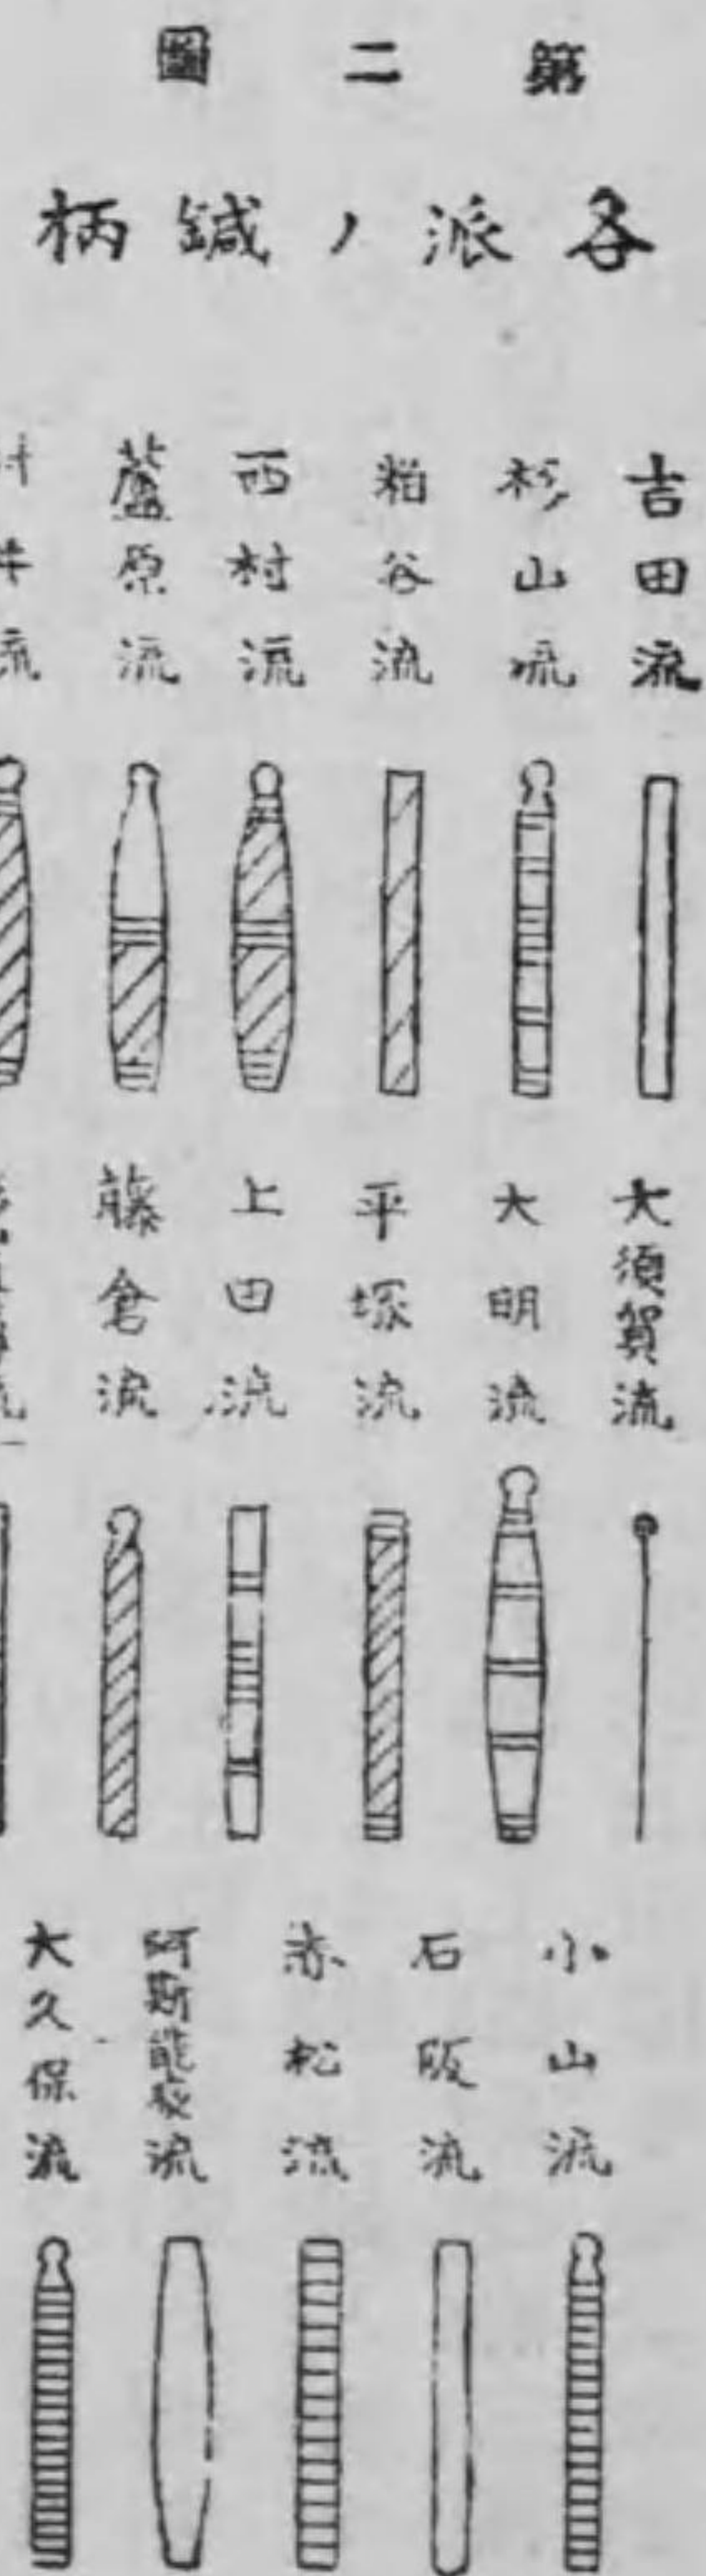 第二圖
各派ノ鍼柄
吉田流
杉山流
粕谷流
西村流
蘆原流
流
大須賀流
大明流
平塚流
上田流
藤倉流
小山流
石阪流
赤松流
阿斯能流
大久保流